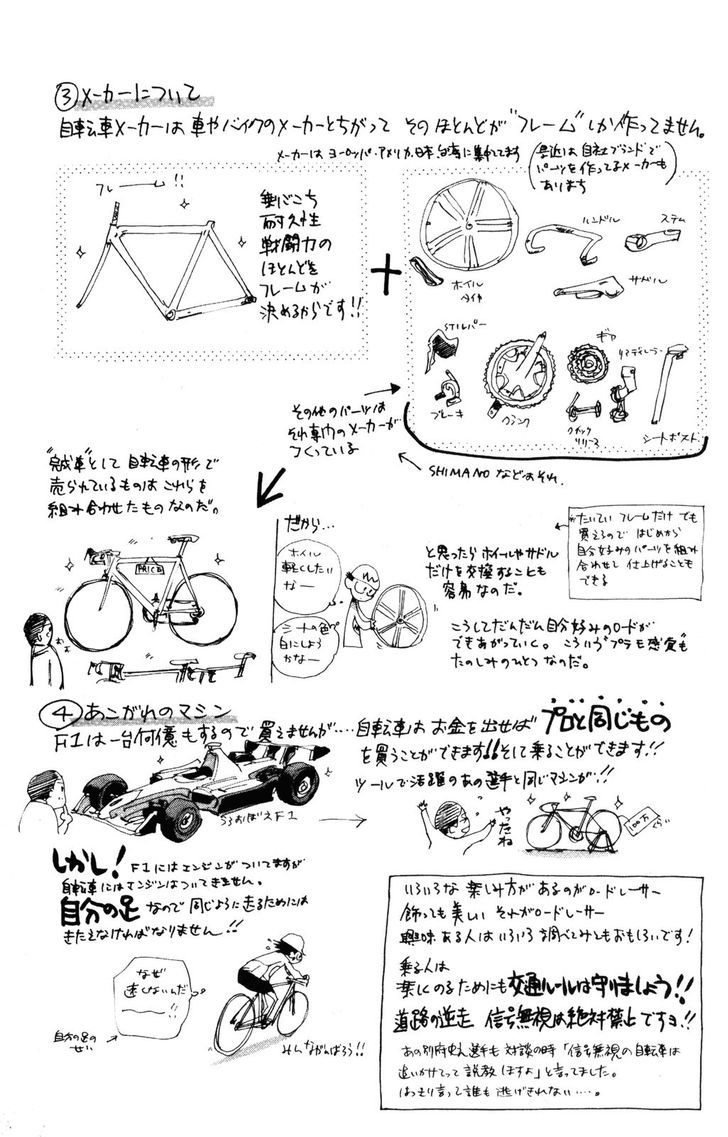 ③メーカーについて
自転車メーカーは 車やバイクのメーカーとちがって そのほとんどが"フレーム"しか作ってません。
メーカーは ヨーロッパ・アメリカ、日本、台湾に集中してます
最近は自社ブランドで
パーツを作ってるメーカーも
あります
フレーム!!
乗りごこち
耐久性
戦闘力の
ほとんどを
フレームが
決めるからです!!
+
ハンドル
ステム
ホイル
タイヤ
サドル
STIレバー
ギア
リアディレーラー
ブレーキ
クランク
クイック
リリース
シートポスト
その他のパーツは
それ専門のメーカーが
つくっている
SHIMANOなどはそれ.
"完成車"として 自転車の形で
売られているものは これらを
組み合わせたものなのだ。
PRICE
だから…
ホイル
軽くしたい
なー
シートの色
白にしよう
かなー
と思ったらホイールやサドル
だけを交換することも
容易なのだ。
だいたい フレームだけ でも
買えるので はじめから
自分好みのパーツを組み
合わせし 仕上げることも
できる
こうしてだんだん自分好みのロードが
できあがっていく。こういう"プラモ感覚"も
たのしみのひとつなのだ。
④あこがれのマシン
F1は一台何億もするので買えませんが‥‥自転車は お金を出せば プロと同じもの
を買うことができます!!そして乗ることができます!!
ツールで活躍のあの選手と同じマシンが!!
うろおぼえF1
やったね
100万
ぐらい
しかし! F1にはエンジンがついてますが
自転車にはエンジンはついてきません。
自分の足 なので 同じように走るためには
きたえなければなりません!!
なぜ
速くないんだ
―――!!
自分の足の
せい
みんながんばろう!!
いろいろな 楽しみ方が あるのがロードレーサー
飾っても美しい それがロードレーサー
興味ある人は いろいろ調べてみてもおもしろいです!
乗る人は
楽しくのるためにも交通ルールは守りましょう!!
道路の逆走 信号無視は絶対禁止ですヨ!!
あの別府史之選手も 対談の時「信号無視の自転車は
追いかけてって 説教しますよ」と言ってました。
はっきり言って誰も 逃げきれない‥‥。